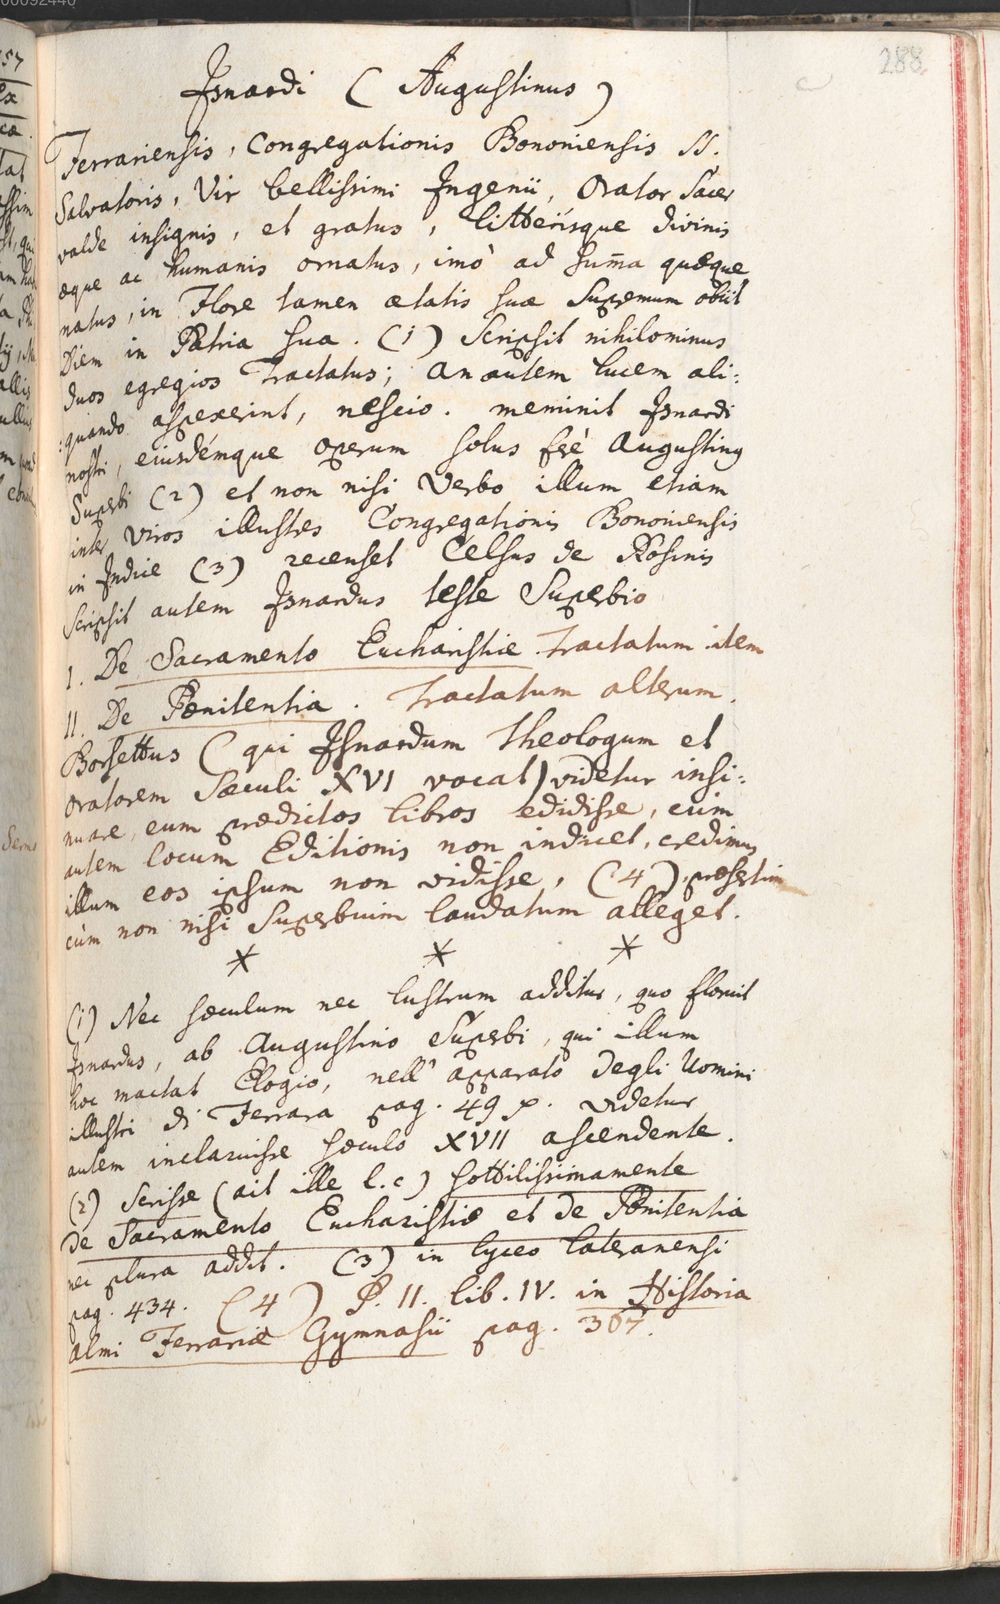 288
Isnardi (Augustinus)
Ferrariensis, Congregationis Bononiensis SS.
Salvatoris, Vir bellissimi Ingenii, Orator Sacer
valde insignis, et gratus, litterisque divinis
æque ac humanis ornatus, imò ad sum̄a quæque
natus, in Flore tamen ætatis suæ Supremum obiit
Diem in Patria sua. (1) Scripsit nihilominus
duos egregios Tractatus; an autem lucem ali:
:quando aspexerint, nescio. meminit Isnardi
nostri, eiusdémque operum solus ferè Augustinus
Superbi (2) et non nisi Verbo illum etiam
inter viros illustres Congregationis Bononiensis
in Indice (3) recenset Celsus de Rosinis
Scripsit autem Isnardus teste Superbio
I. De Sacramento Eucharistiæ Tractatum item
II. De Pœnitentia. Tractatum alterum.
Borsettus (qui Isnardum Theologum et
oratorem Sæculi XVI vocat) videtur insi:
nuare, eum prædictos libros edidisse, cùm
autem locum Editionis non indicet, credimus
illum eos ipsum non vidisse, (4) præsertim
cùm non nisi Superbium laudatum alleget.
* * *
(1) Nec sæculum nec lustrum additur, quo floruit
Isnardus, ab Augustino Superbi, qui illum
hoc mactat Elogio, nell' apparato degli Uomini
illustri di Ferrara pag. 49 p. videtur
autem inclaruisse sæculo XVII ascendente.
(2) Scrisse (ait ille l.c) sottilissimamente
de Sacramento Eucharistiæ et de Pœnitentia
nec plura addit. (3) in lyceo lateranensi
pag. 434. (4) P. II. lib. IV. in Historia
almi Ferrariæ Gymnasii pag. 367.